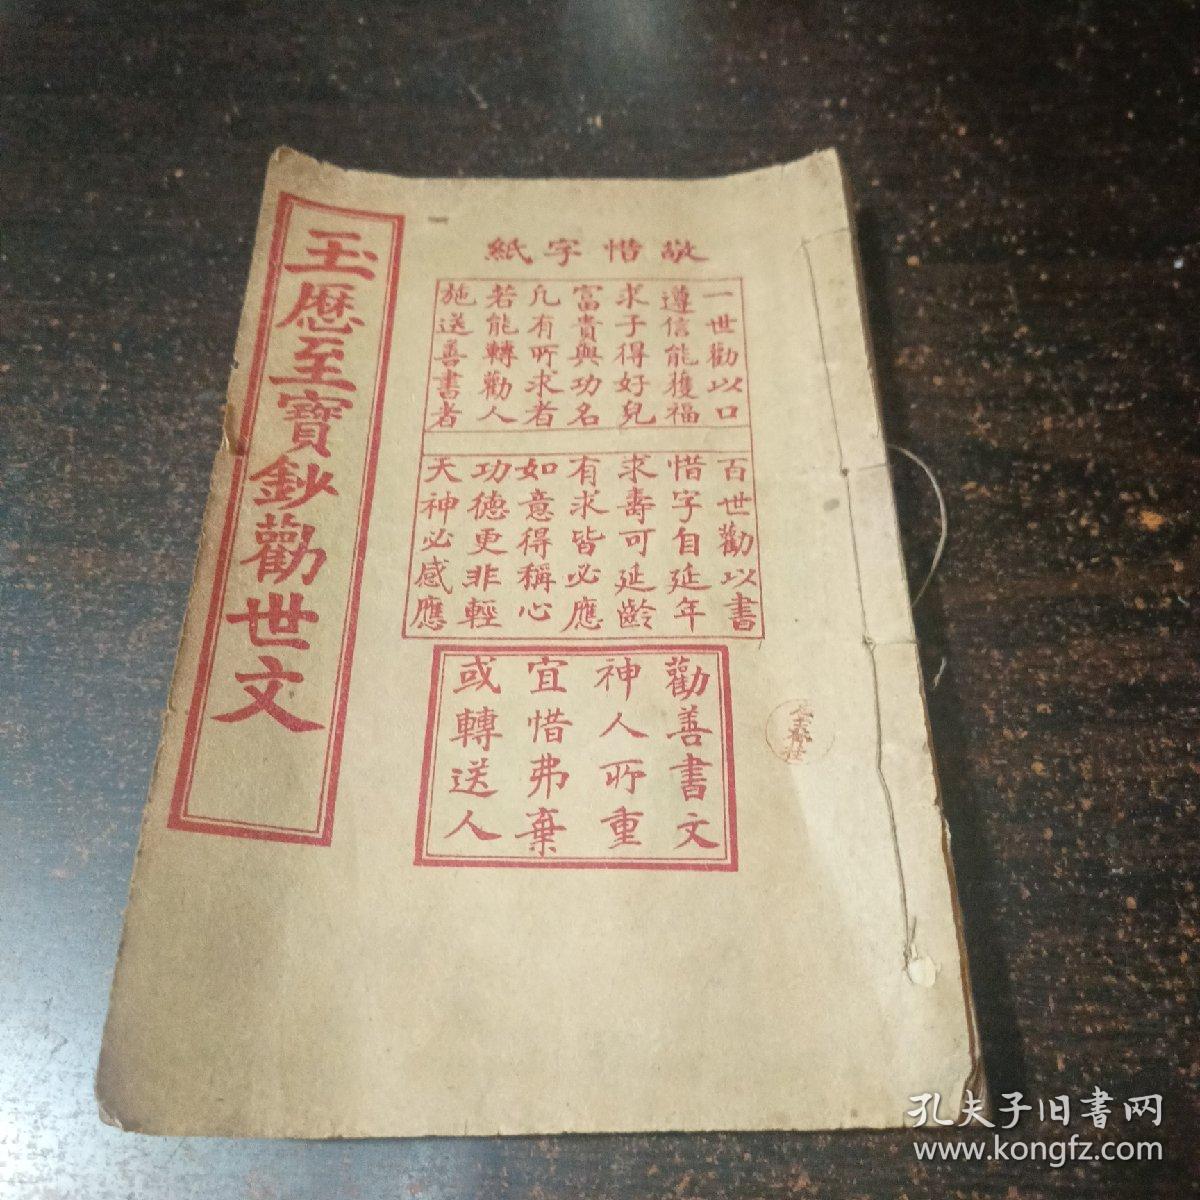 敬惜字紙
一世勸以口
遵信能獲福
求子得好兒
富貴與功名
凡有所求者
若能轉勸人
施送善書者
百世勸以書
惜字自延年
求壽可延齡
有求皆必應
如意得稱心
功德更非輕
天神必感應
勸善書文
神人所重
宜惜弗棄
或轉送人
玉歷至寶鈔勸世文
孔夫子旧書网
www.kongfz.com